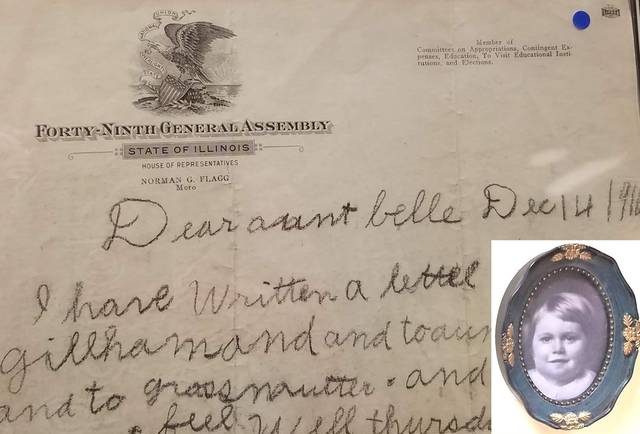 Member of
Committees on Appropriations, Contingent Ex-
penses, Education, To Visit Educational Insti-
tutions, and Elections.
FORTY-NINTH GENERAL ASSEMBLY
STATE OF ILLINOIS
HOUSE OF REPRESENTATIVES
NORMAN G. FLAGG
Moro
Dear aaunt belle Dec 14 1916
I have Written a lettel
gillham and and to aun
and to grossmutter. and
feel Well thursd